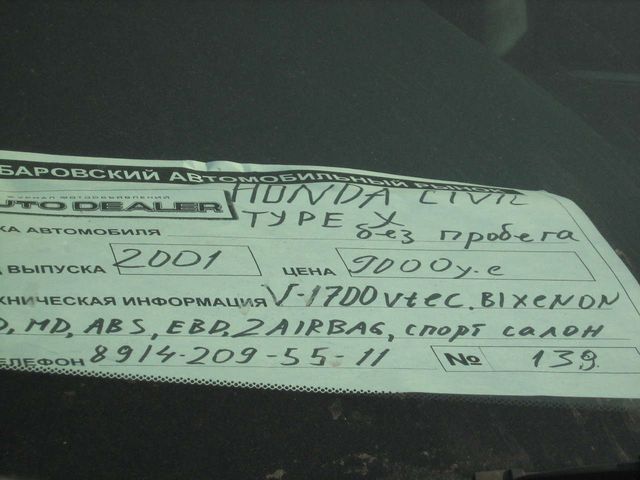 БАРОВСКИЙ АВТОМОБИЛЬНЫЙ РЫНОК
ЖУРНАЛ МОТОРОБЪЯВЛЕНИЙ
UTO DEALER HONDA CIVIC
TYPE X
КА АВТОМОБИЛЯ без пробега
ВЫПУСКА 2001 ЦЕНА 9000 у.е
ХНИЧЕСКАЯ ИНФОРМАЦИЯ V-1700 vtec. BIXENON
D, MD, ABS, EBD, 2 AIRBAG, спорт салон
ЕЛЕФОН 8914-209-55-11 № 139